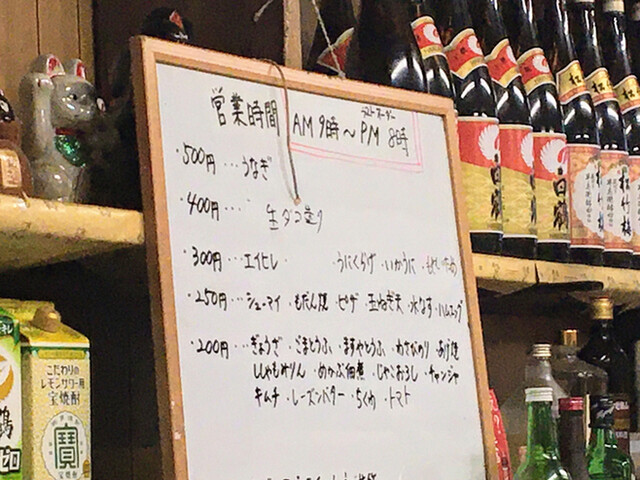 営業時間 AM 9時～PM 8時
ラストオーダー
・500円…うなぎ
・400円… 生ダコ造り
・300円…エイヒレ ・うにくらげ ・いかうに
・250円…シューマイ ・もだん焼 ・ピザ ・玉ねぎ天 ・水なす ・ハムエッグ
・200円…ぎょうざ ・ごまとうふ ・ ・わさびのり ・あげ焼
ししゃもみりん ・めかぶ佃煮 ・じゃこおろし ・チャンジャ
キムチ ・レーズンバター ・ちくわ ・トマト
こだわりの
レモンサワー用
宝焼酎
寶
宝焼酎
鶴
ゼロ
白鶴
松竹梅